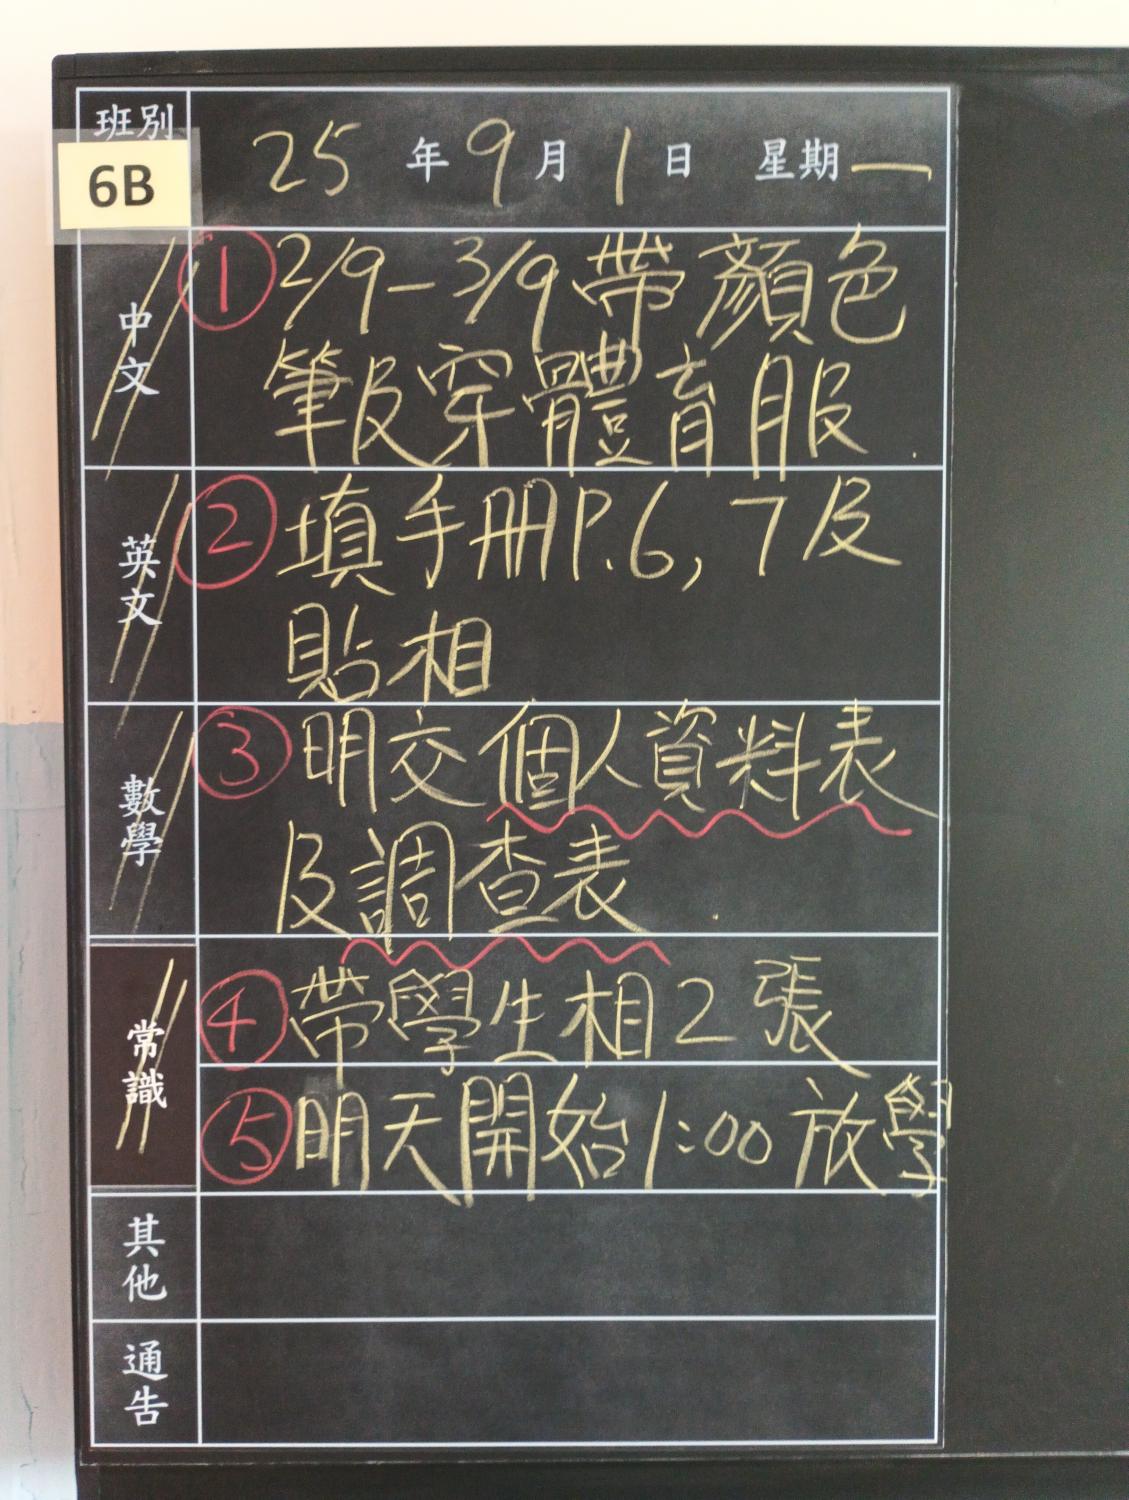 班別
6B
25年9月1日 星期一
中文
① 2/9-3/9帶顏色
筆及穿體育服.
英文
② 填手冊P.6,7及
貼相
數學
③ 明交個人資料表
及調查表.
常識
④ 帶學生相2張
⑤ 明天開始1:00放學
其他
通告